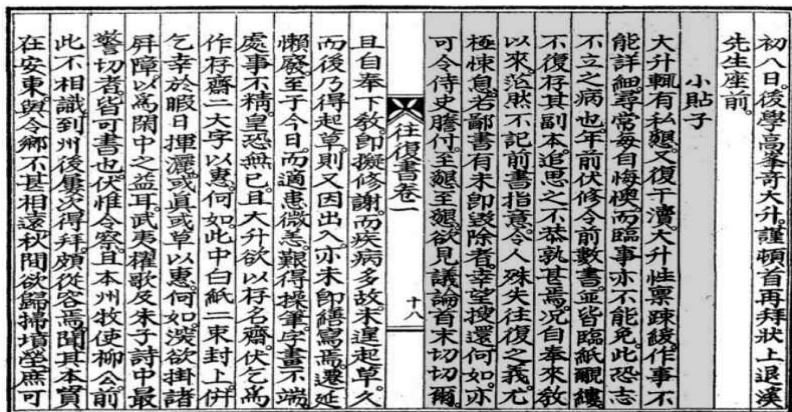 初八日。後學高峯奇大升。謹頓首再拜狀上退溪
先生座前。
小貼子
大升輒有私懇。又復干瀆。大升性禀踈緩。作事不
能詳細。尋常每自悔懊。而臨事亦不能免。此恐志
不立之病也。年前伏修令前數書。並皆臨紙覼縷
不復存其副本。追思之。不恭孰甚焉。况自奉來敎
以來。茫然不記前書指意。令人殊失往復之義。尤
極悚息。若鄙書有未卽毁除者。幸望搜還何如。亦
可令侍史謄付。至懇至懇。欲見議論首末切切爾。
往復書卷一 十八
且自奉下敎。卽擬修謝。而疾病多故。未遑起草。久
而後乃得起草。則又因出入。亦未卽繕寫焉。遷延
懶廢。至于今日。而適患微恙。艱得操筆。字畫不端。
處事不精。皇恐無已。且大升欲以存名齋。伏乞爲
作存齋二大字以惠。何如。此中白紙二束封上。倂
乞幸於暇日揮灑。或眞或草以惠。何如。深欲掛諸
屛障。以爲閑中之益耳。武夷櫂歌及朱子詩中最
警切者。皆可書也。伏惟令察。且本州牧使柳公。前
此不相識。到州後屢次得拜。頗從容焉。聞其本貫
在安東。與令鄕不甚相遠。秋間欲歸掃墳塋。庶可